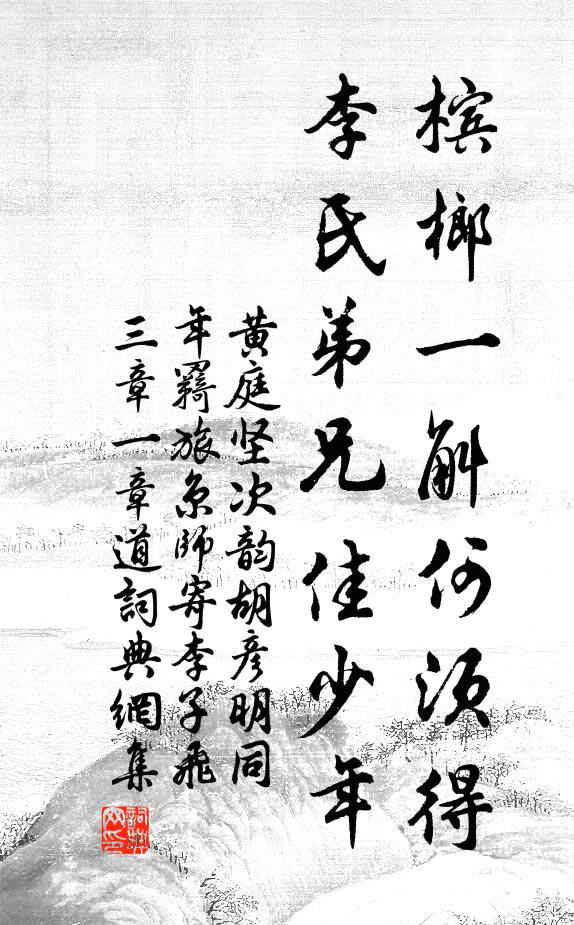 槟榔一斛何须得
李氏弟兄佳少年
黄庭坚次韵胡彦明同
年羁旅京师寄李子飞
三章一章道詞典網集